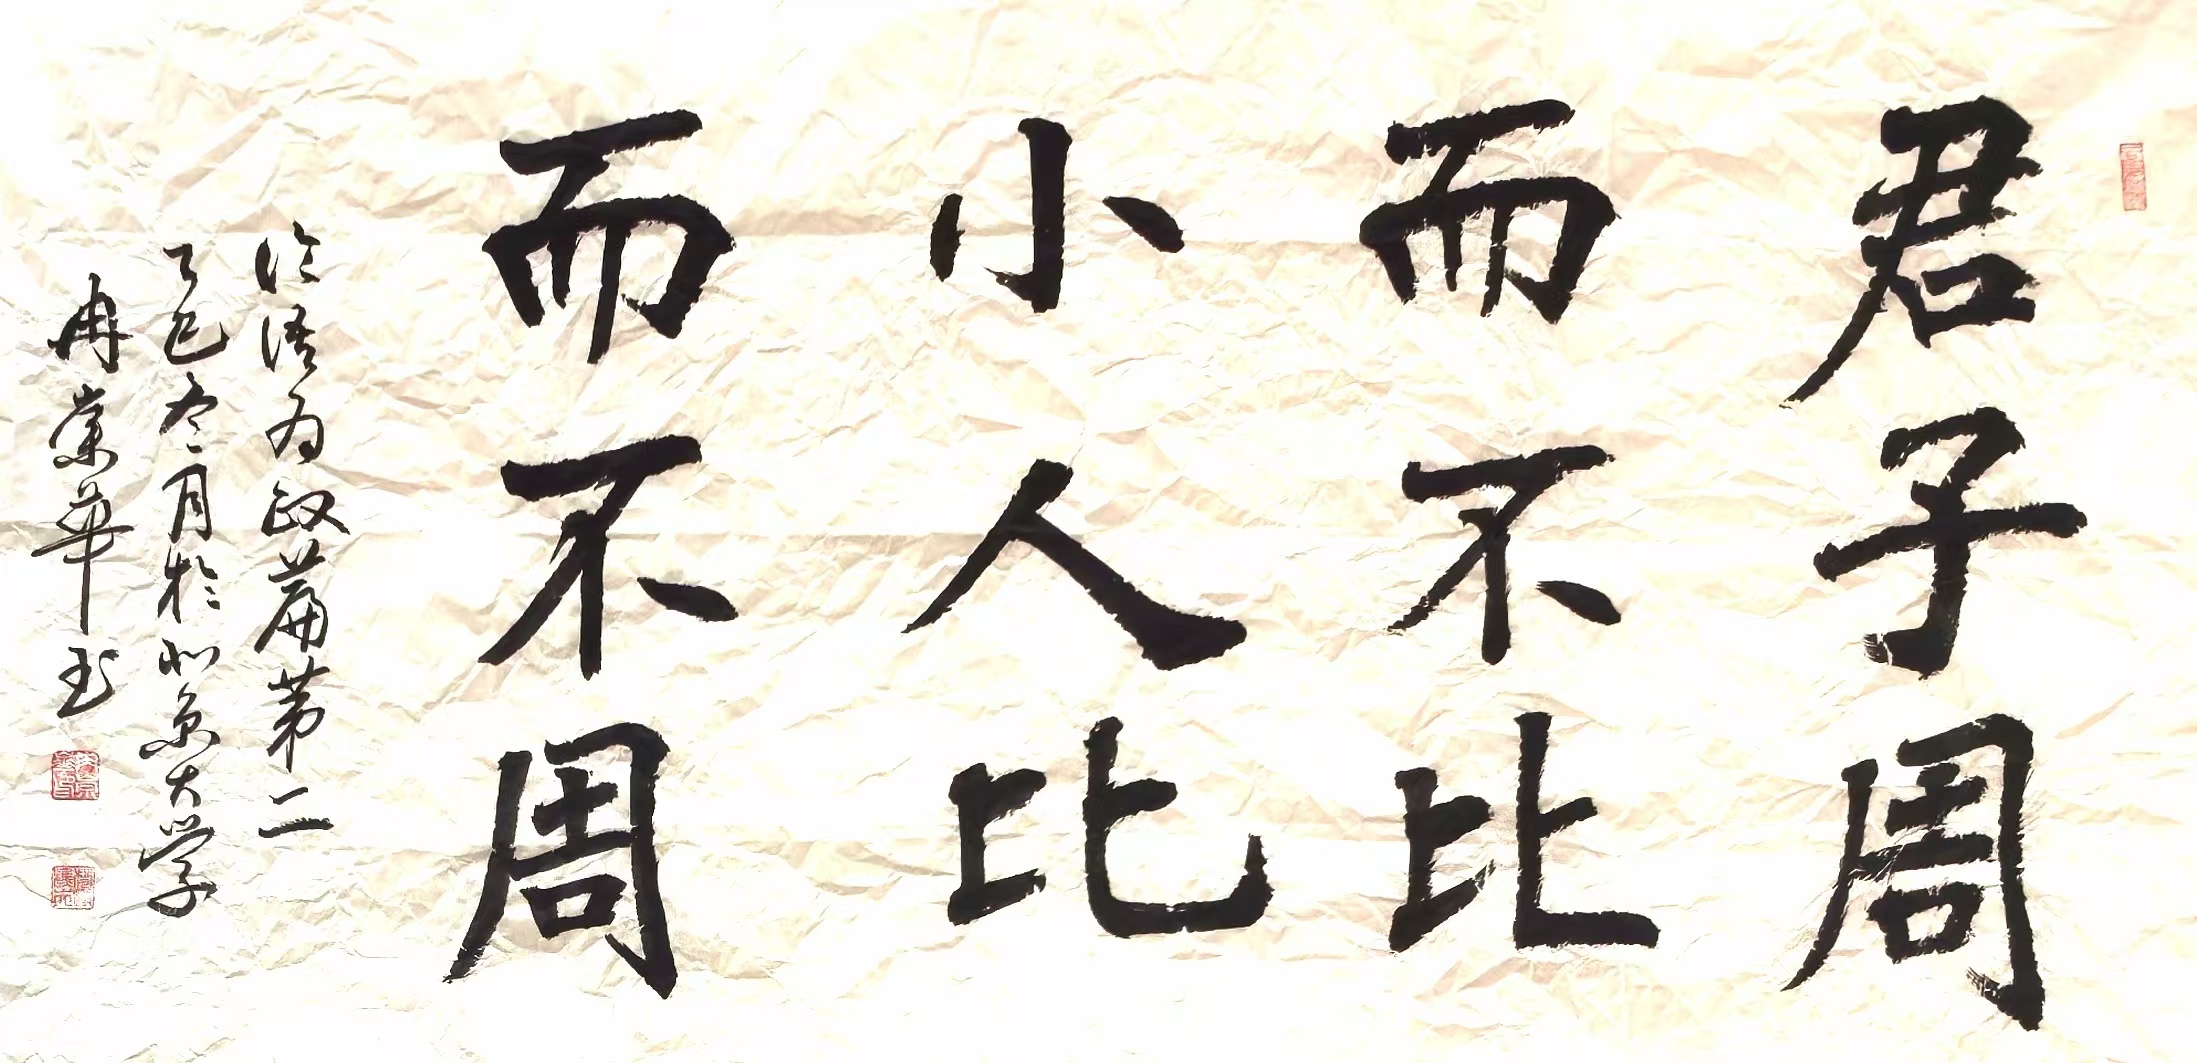 君子周
而不比
小人比
而不周
论语为政篇第二
乙巳冬月於北京大学
冉業華玉